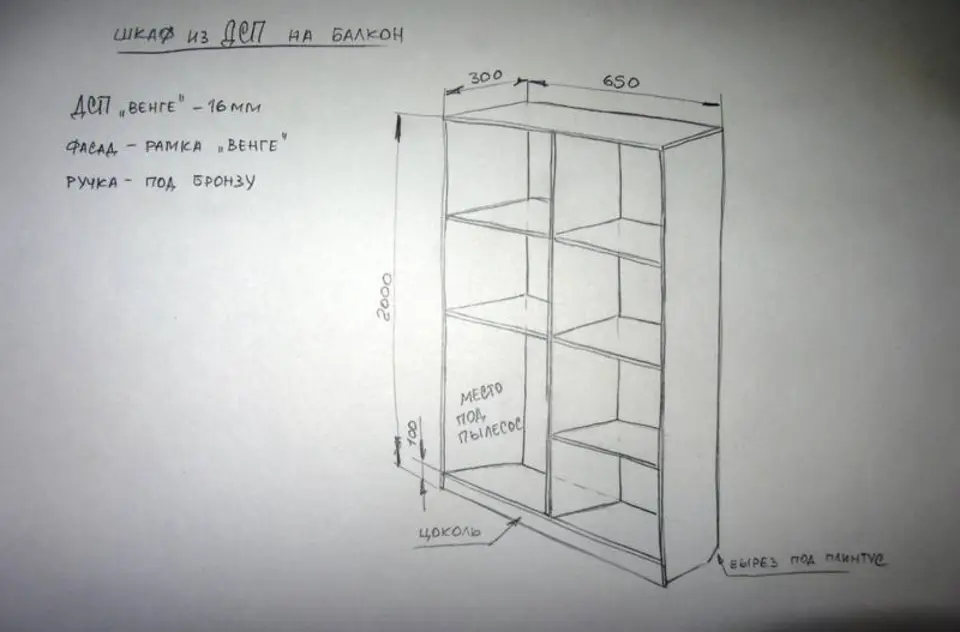 ШКАФ ИЗ ДСП НА БАЛКОН
ДСП „ВЕНГЕ" - 16 ММ
ФАСАД - РАМКА „ВЕНГЕ"
РУЧКА - ПОД БРОНЗУ
300
650
2000
МЕСТО
ПОД
ПЫЛЕСОС
100
ЦОКОЛЬ
ВЫРЕЗ ПОД ПЛИНТУС